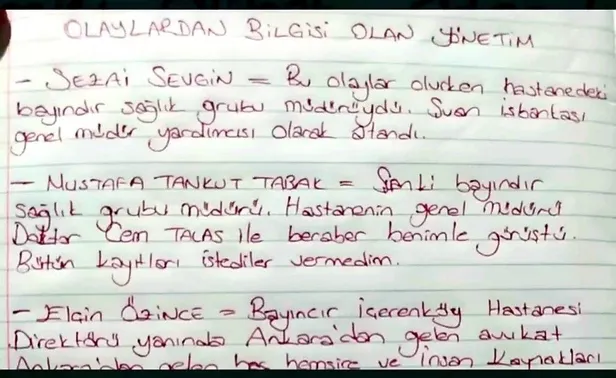 OLAYLARDAN BİLGİSİ OLAN YÖNETİM
- SEZAİ SEVGİN = Bu olaylar olurken hastanedeki
bayındır sağlık grubu müdürüydü. Şuan işbankası
genel müdür yardımcısı olarak atandı.
- MUSTAFA TANKUT TABAK = Şimdi bayındır
sağlık grubu müdürü. Hastanenin genel müdürü
Doktor Cem TALAS ile beraber benimle görüştü.
Bütün kayıtları istediler vermedim.
- Elçin ÖZİNCE = Bayındır içerenköy Hastanesi
Direktörü yanında Ankara'dan gelen avukat
Ankara'dan gelen baş hemşire ve insan kaynakları